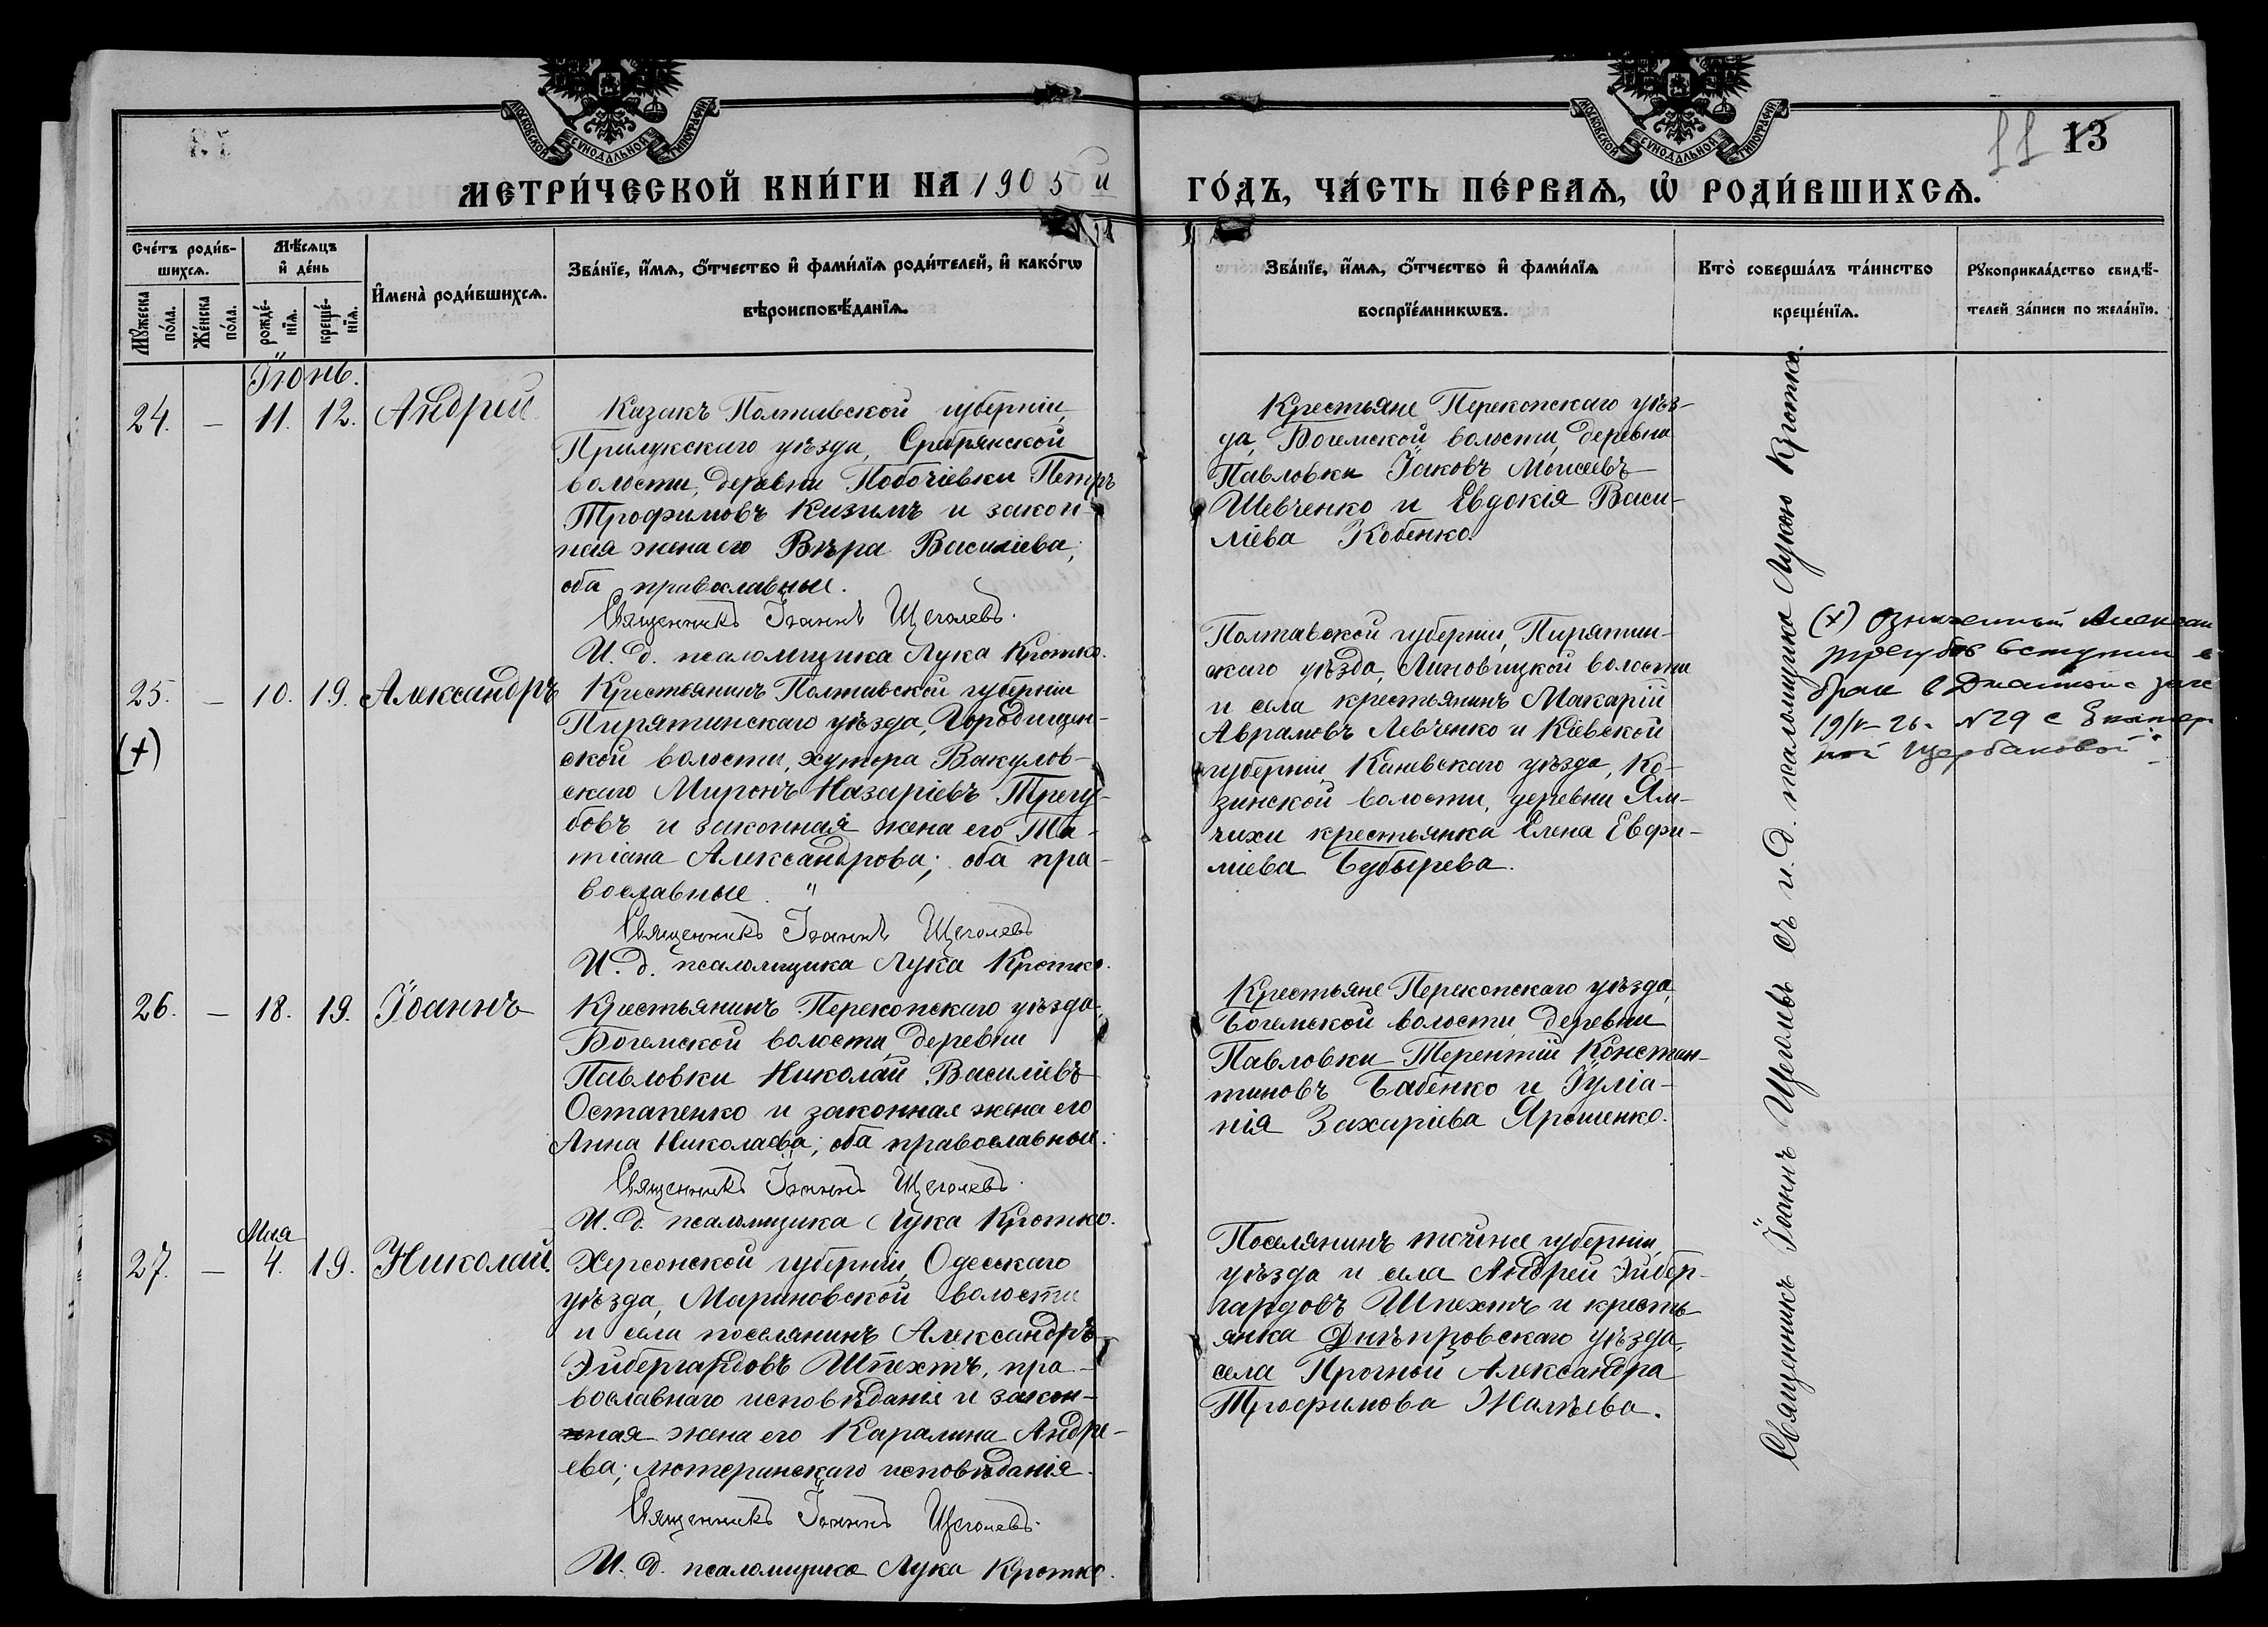 МОСКОВСКОЙ СѴНОДАЛЬНОЙ ТИПОГРАФІИ
МОСКОВСКОЙ СѴНОДАЛЬНОЙ ТИПОГРАФІИ
11 13
МЕТРИ́ЧЕСКОЙ КНИ́ГИ НА 1905 й
ГО́ДЪ, ЧА́СТЬ ПЕ́РВАѦ, Ѡ҆ РОДИ́ВШИХСѦ.
Сче́тъ роди́в-
шихсѧ.
Мꙋ́жеска по́ла.
Же́нска по́ла.
Мѣ́сѧцъ
и҆ де́нь
рожде́-
нїѧ.
креще́-
нїѧ.
И҆мена̀ роди́вшихсѧ.
Зва́нїе, и҆́мѧ, ѻ҆́тчество и҆ фами́лїѧ роди́телей, и҆ како́гѡ
вѣроисповѣ́данїѧ.
Зва́нїе, и҆́мѧ, ѻ҆́тчество и҆ фами́лїѧ
воспрїе́мникѡвъ.
Кто̀ соверша́лъ та́инство
креще́нїѧ.
Рꙋкоприкла́дство свидѣ́-
телей за́писи по жела́нїю.
Іюнь.
24. — 11. 12. Андрей
Казакъ Полтавской губерніи,
Прилукскаго уѣзда, Сребрянской
волости, деревни Побочіевки Петръ
Трофимовъ Кизимъ и закон-
ная жена его Вѣра Василіева,
оба православные.
Священникъ Іоаннъ Щеголевъ.
И. д. псаломщика Лука Кротко.
Крестьяне Перекопскаго уѣз-
да, Богемской волости, деревни
Павловки Іаковъ Моисеевъ
Шевченко и Евдокія Васи-
ліева Кобенко
25. — 10. 19. Александръ
(+)
Крестьянинъ Полтавской губерніи
Пирятинскаго уѣзда, Городищен-
ской волости, хутора Вакулов-
скаго Миронъ Назаріевъ Трегу-
бовъ и законная жена его Та-
тіана Александрова; оба пра-
вославные. "
Священникъ Іоаннъ Щеголевъ
И. д. псаломщика Лука Кротко.
Полтавской губерніи, Пирятин-
скаго уѣзда, Линовицкой волости
и села крестьянинъ Макарій
Аврамовъ Левченко и Кіевской
губерніи, Каневскаго уѣзда, Ко-
зинской волости, деревни Ям-
чихи крестьянка Елена Евфи-
міева Бубырева.
(+) Означенный Алексан
Трегубов вступил в
брак в загс
19/V–26. N 29 с Екатер
ной Щербаковой
26. — 18. 19. Іоаннъ
Крестьянинъ Перекопскаго уѣзда,
Богемской волости, деревни
Павловки Николай Василіевъ
Остапенко и законная жена его
Анна Николаева; оба православные.
Священникъ Іоаннъ Щеголевъ.
И. д. псаломщика Лука Кротко.
Крестьяне Перекопскаго уѣзда,
Богемской волости, деревни
Павловки Терентій Констан-
тиновъ Бабенко и Іуліа-
нія Захаріева Ярошенко.
Мая
27. — 4. 19. Николай.
Херсонской губерніи, Одесскаго
уѣзда, Мариновской волости
и села поселянинъ Александръ
Эйбергардовъ Шпехтъ, пра-
вославнаго исповѣданія и закон-
ная жена его Каралина Андре-
ева; лютеранскаго исповѣданія.
Священникъ Іоаннъ Щеголевъ.
И. д. псаломщика Лука Кротко.
Поселянинъ той же губерніи,
уѣзда и села Андрей Эйбер-
гардовъ Шпехтъ и кресть-
янка Днѣпровскаго уѣзда,
села Прогной Александра
Трофимова
Священникъ Іоаннъ Щеголевъ съ и. д. псаломщика Лукою Кротко.